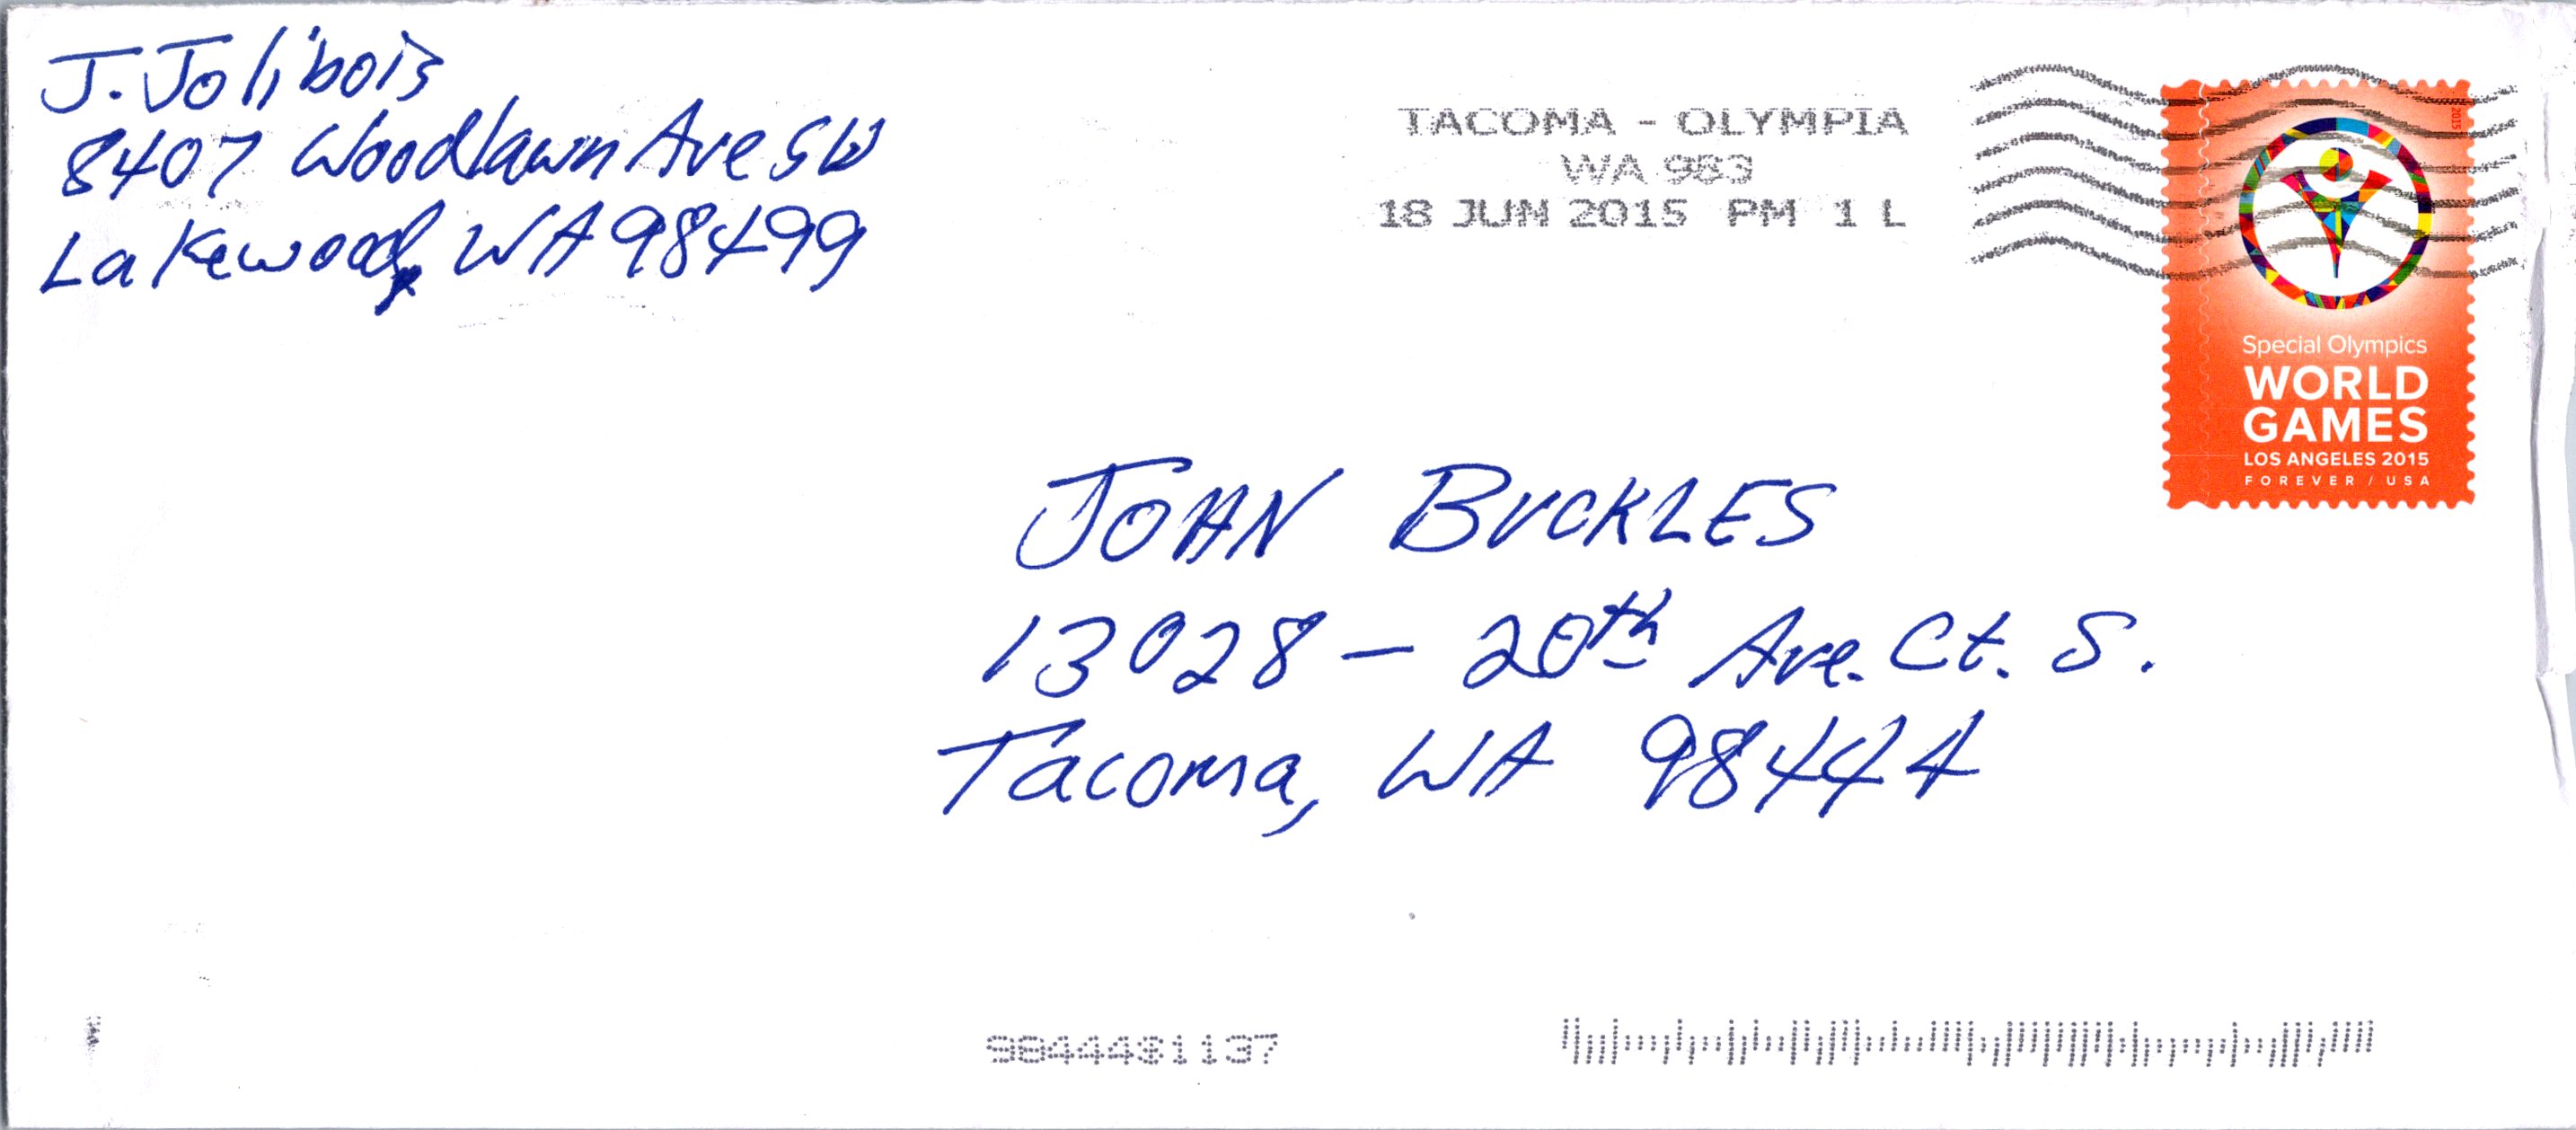 J. Jolibois
8407 Woodlawn Ave SW
Lakewood, WA 98499
TACOMA - OLYMPIA
WA 983
18 JUN 2015 PM 1 L
2015
Special Olympics
WORLD
GAMES
LOS ANGELES 2015
FOREVER / USA
JOHN BUCKLES
13028 – 20th Ave. Ct. S.
Tacoma, WA 98444
98444$1137